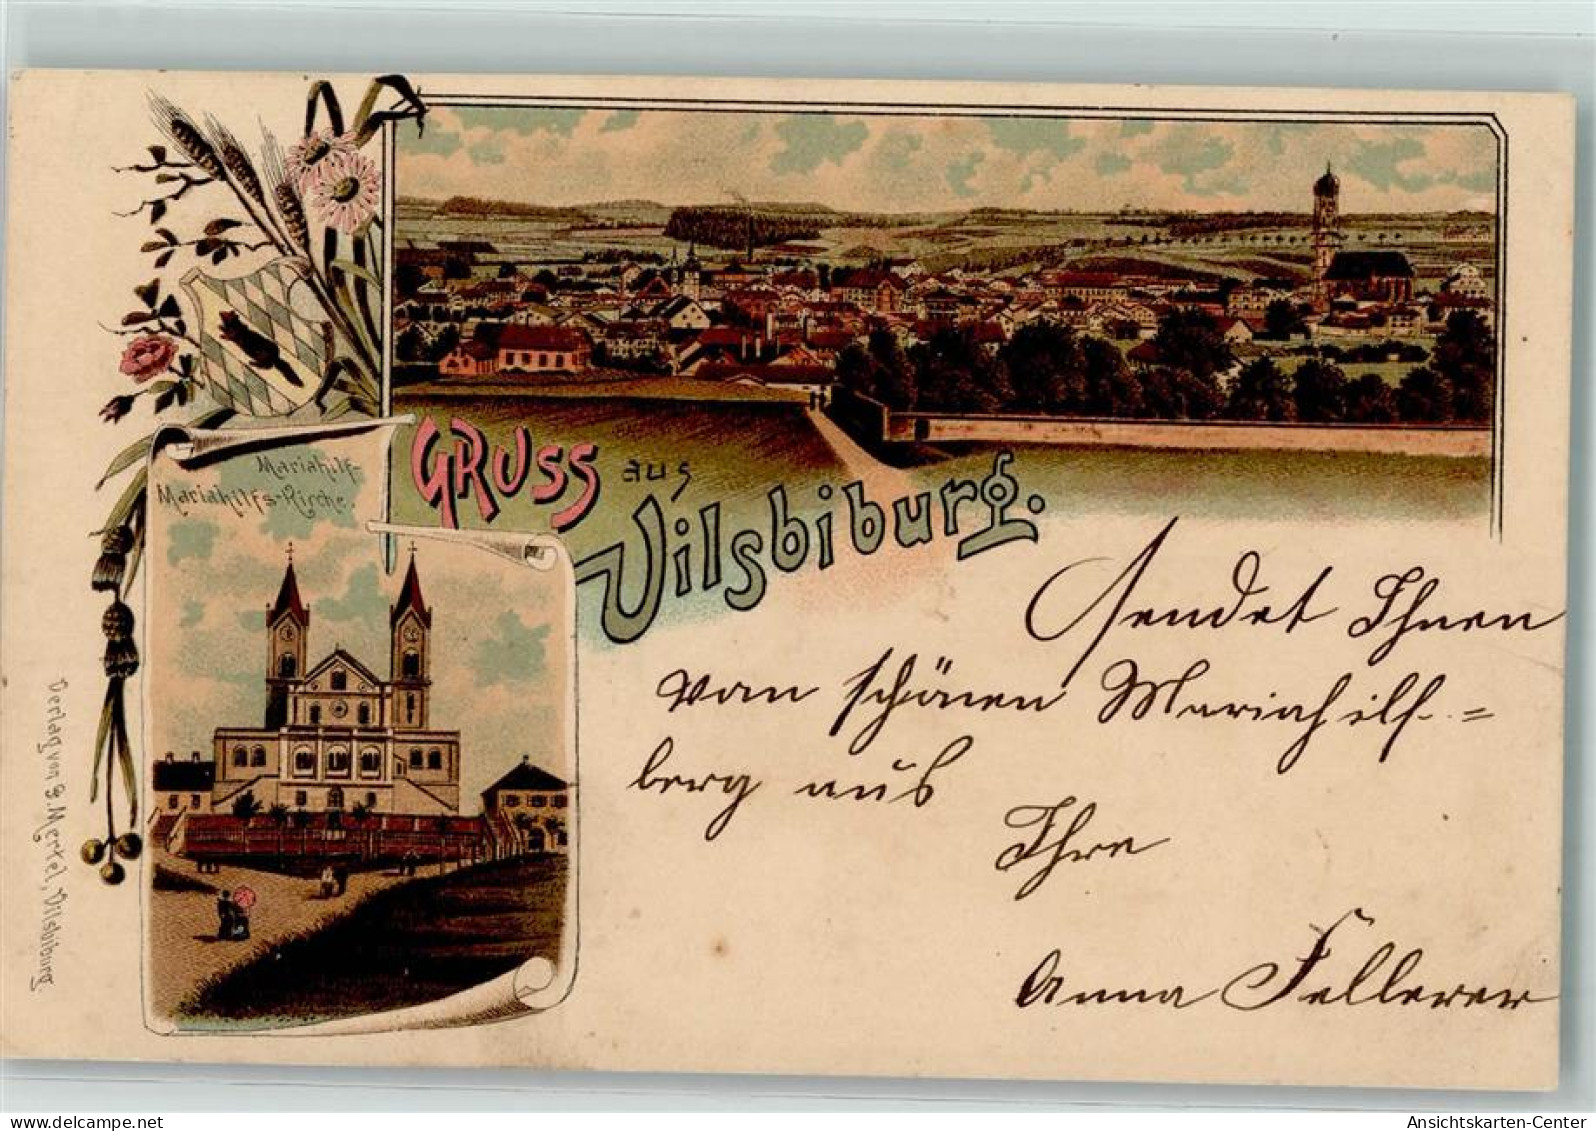 Mariahilf-
Mariahilfs-Kirche.
GRUSS aus
Vilsbiburg.
Sendet Ihnen
vom schönen Mariahilf-=
berg aus
Ihre
Anna Fellerer
Verlag von G. Merkel, Vilsbiburg.
Ansichtskarten-Center